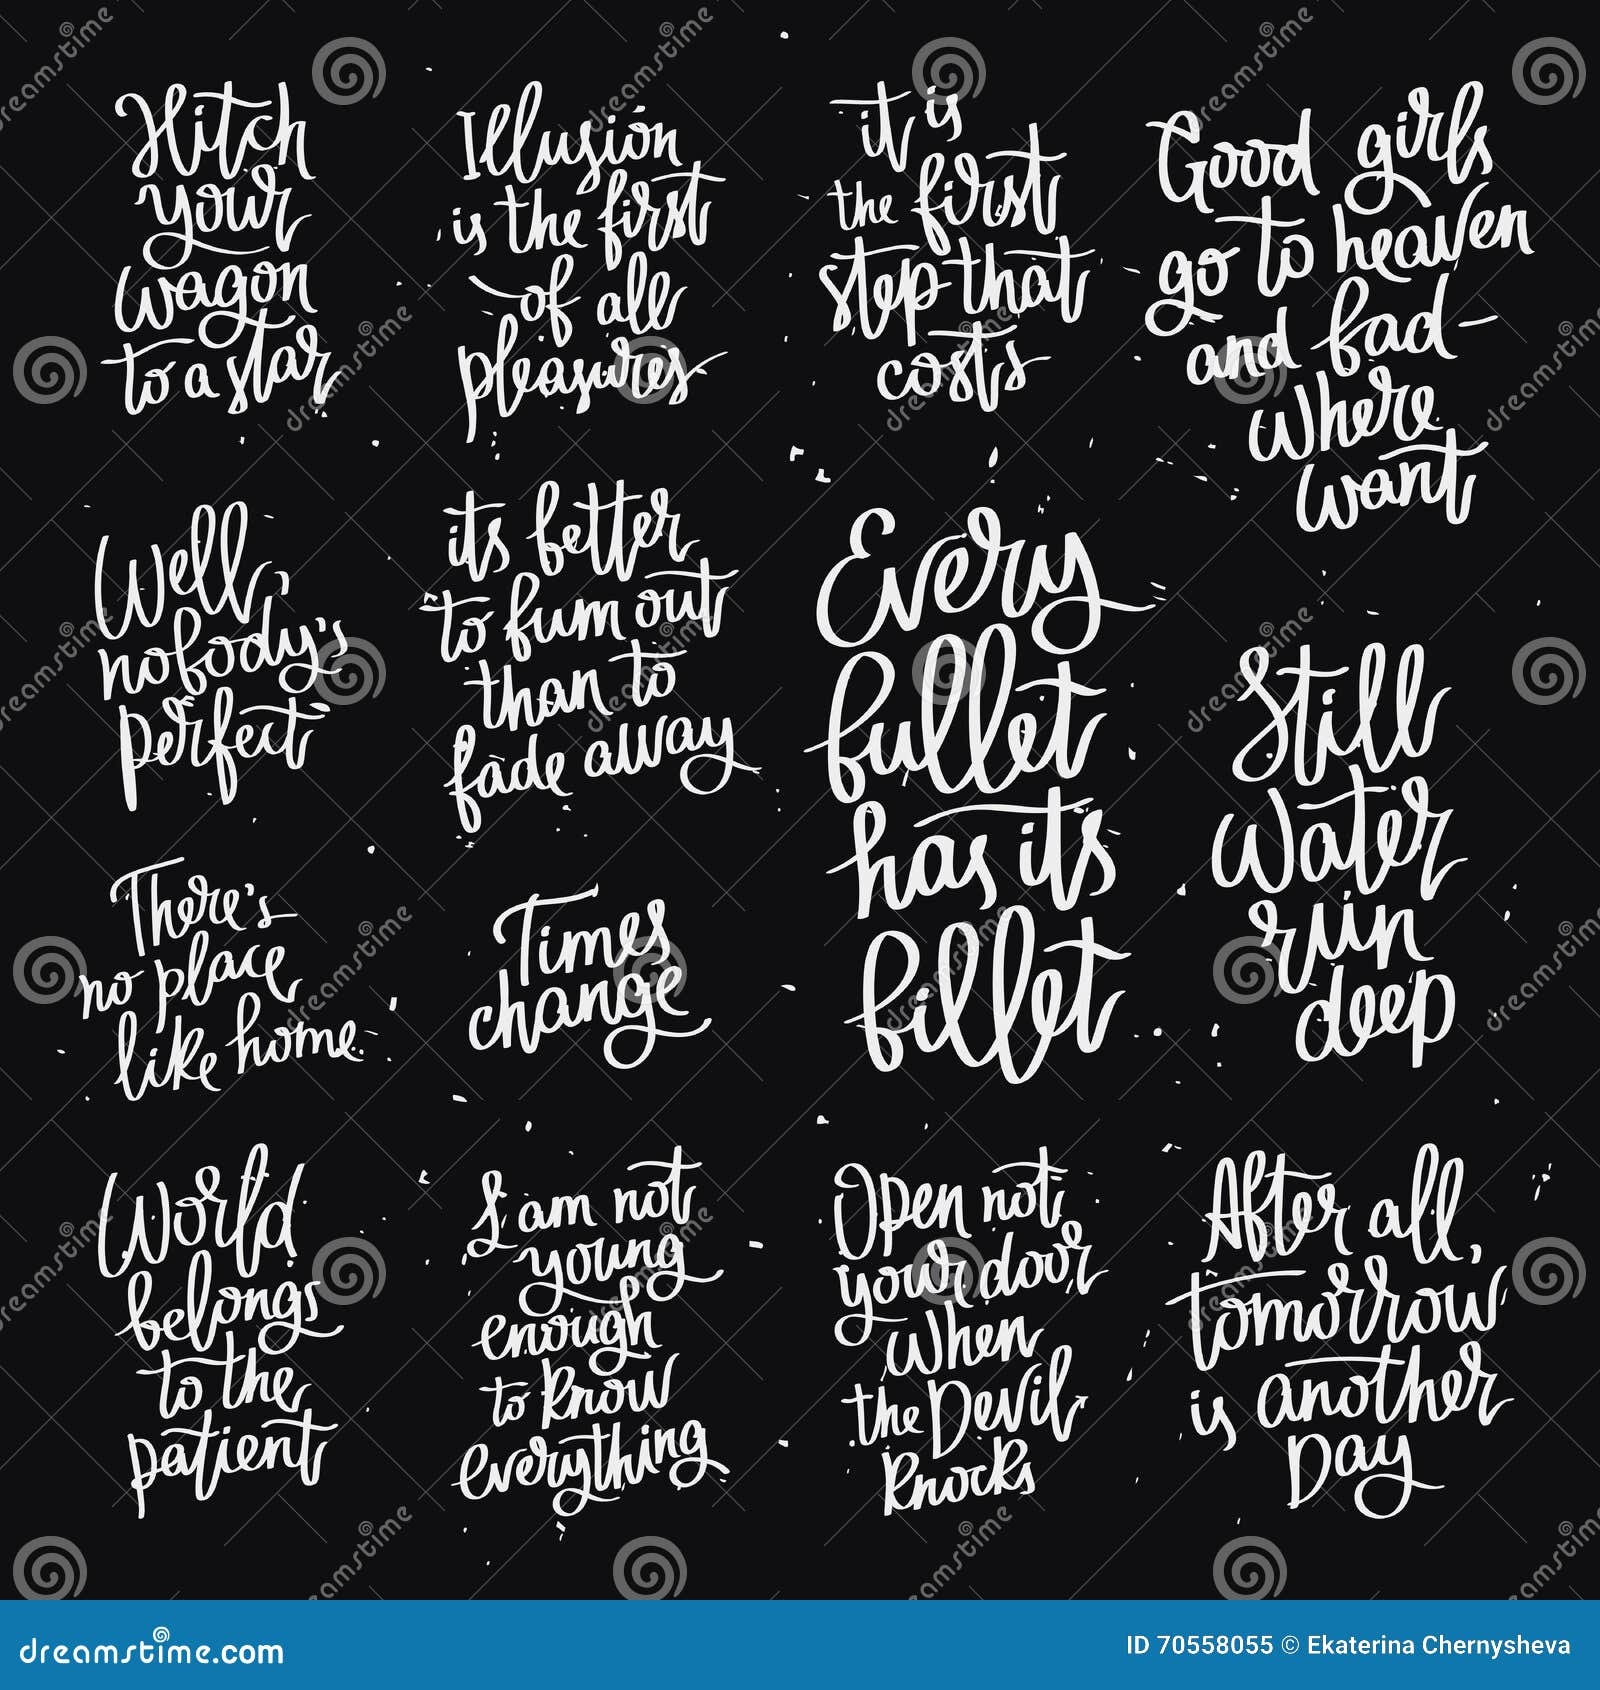 Hitch
your
wagon
to a star
Illusion
is the first
of all
pleasures
it is
the first
step that
costs
Good girls
go to heaven
and bad-
where
want
Well,
nobody's
perfect
its better
to burn out
than to
fade away
Every
bullet
has its
billet
Still
water
run
deep
There's
no place
like home
Times
change
World
belongs
to the
patient
I am not
young
enough
to know
everything
Open not
your door
when
the Devil
knocks
After all,
tomorrow
is another
Day
dreamstime.com
ID 70558055 © Ekaterina Chernysheva